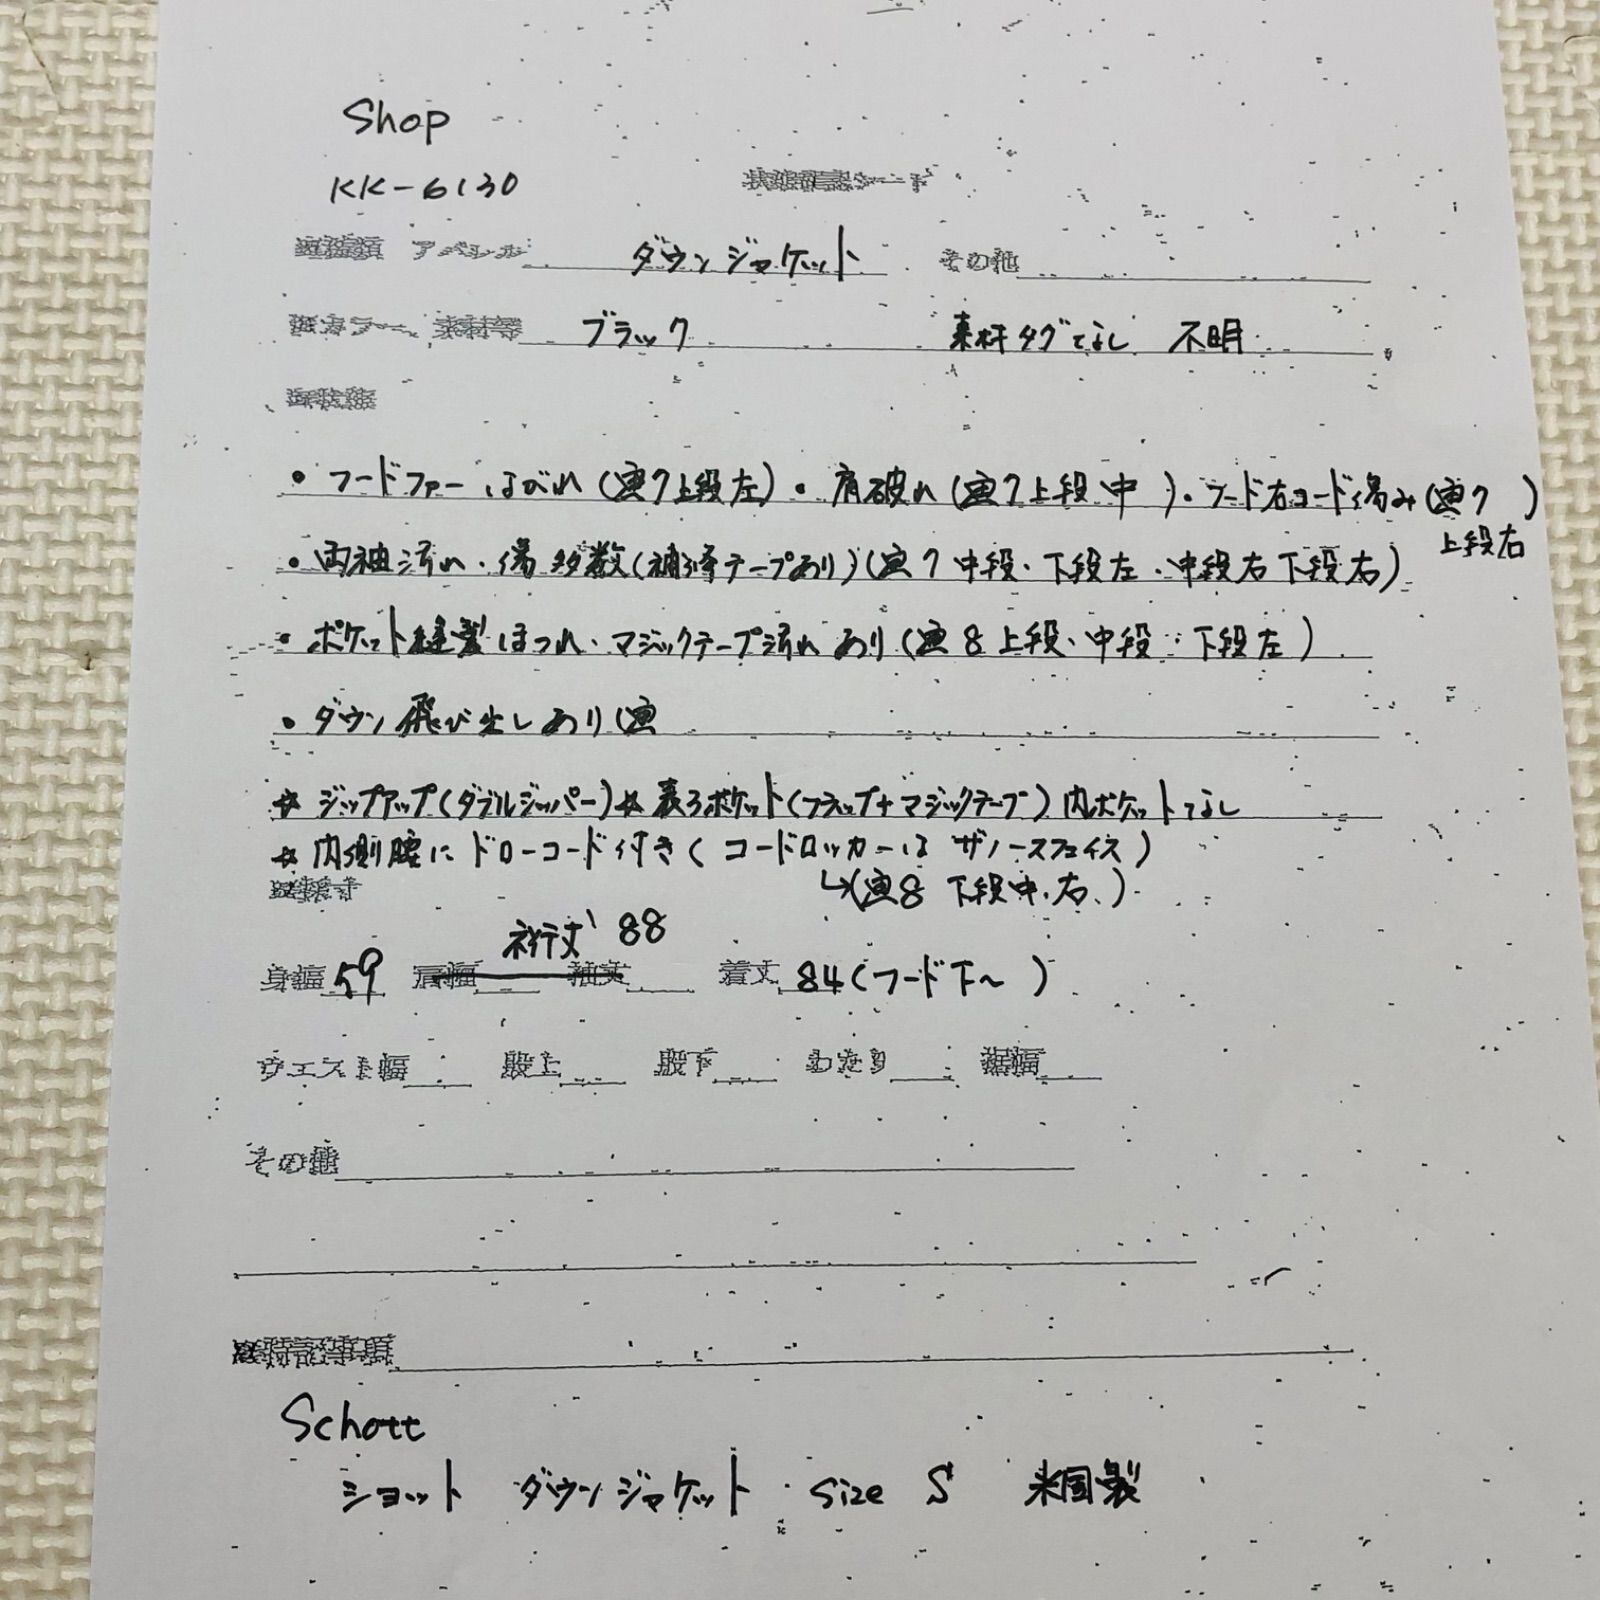 Shop
KK-6130 状態確認シート
アパレル ダウンジャケット その他
カラー、素材等 ブラック 素材タグなし 不明
・フードファーはがれ(画7上段左)・肩破れ(画7上段中)・フード右コード傷み(画7上段右)
・両袖汚れ・傷多数(補修テープあり)(画7中段・下段左・中段右下段右)
・ポケット縫製ほつれ・マジックテープ汚れあり(画8上段・中段・下段左)
・ダウン飛び出しあり(画
☆ジップアップ(ダブルジッパー)☆表3ポケット(フラップ+マジックテープ)内ポケットなし
☆内側腰にドローコード付き(コードロッカーはザノースフェイス)
↳(画8 下段中、右、)
裄丈 88
身幅 59 肩幅 袖丈 着丈 84(フード下~)
ウエスト幅 股上 股下 わたり 裾幅
その他
※特記事項
Schott
ショット ダウンジャケット size S 米国製